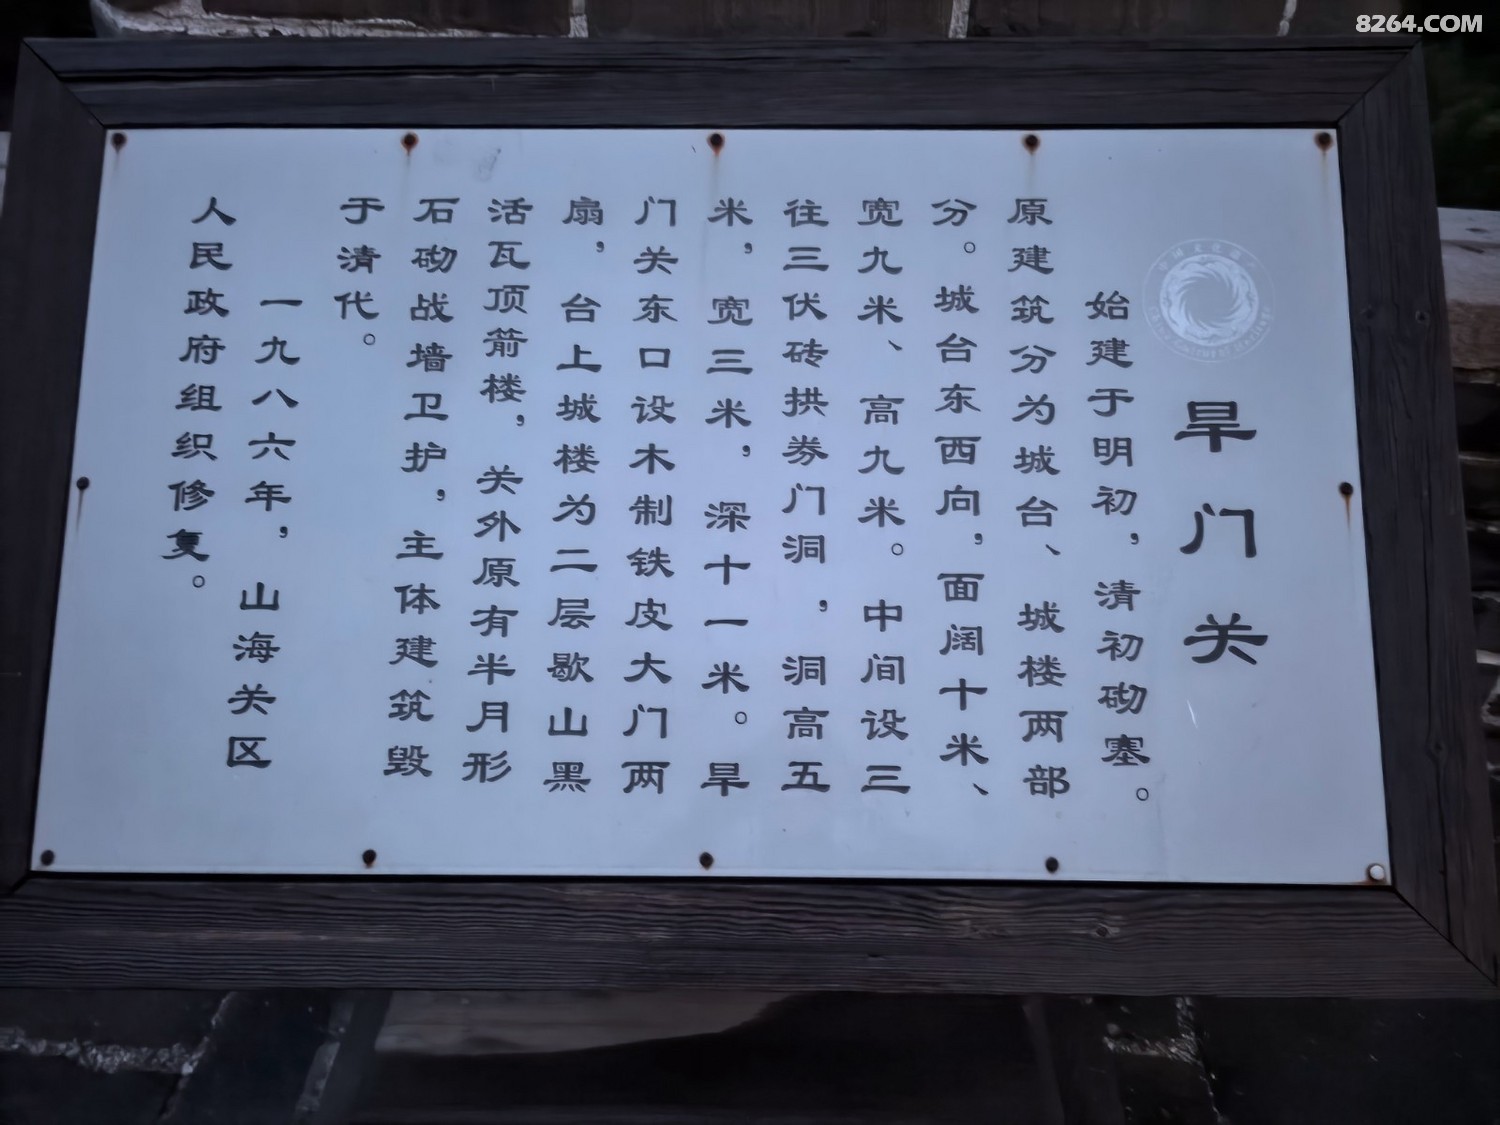 8264.COM
旱门关
始建于明初，清初砌塞。
原建筑分为城台、城楼两部
分。城台东西向，面阔十米、
宽九米、高九米。中间设三
往三伏砖拱券门洞，洞高五
米，宽三米，深十一米。旱
门关东口设木制铁皮大门两
扇，台上城楼为二层歇山黑
活瓦顶箭楼，关外原有半月形
石砌战墙卫护，主体建筑毁
于清代。
一九八六年，山海关区
人民政府组织修复。